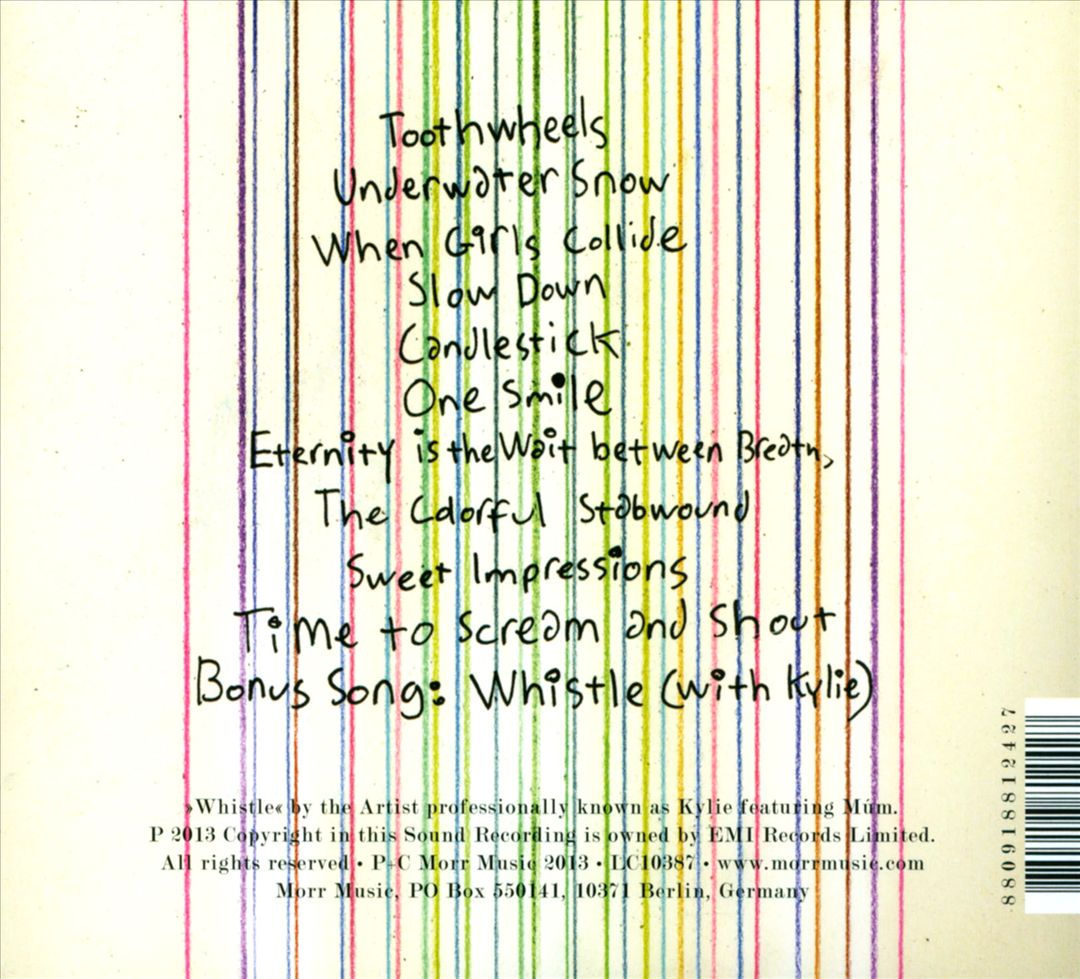 Toothwheels
Underwater Snow
When Girls Collide
Slow Down
Candlestick
One Smile
Eternity is the Wait between Breaths
The Colorful Stabwound
Sweet Impressions
Time to Scream and Shout
Bonus Song: Whistle (with Kylie)
»Whistle« by the Artist professionally known as Kylie featuring Múm.
P 2013 Copyright in this Sound Recording is owned by EMI Records Limited.
All rights reserved • P+C Morr Music 2013 • LC10387 • www.morrmusic.com
Morr Music, PO Box 550141, 10371 Berlin, Germany
8809188812427